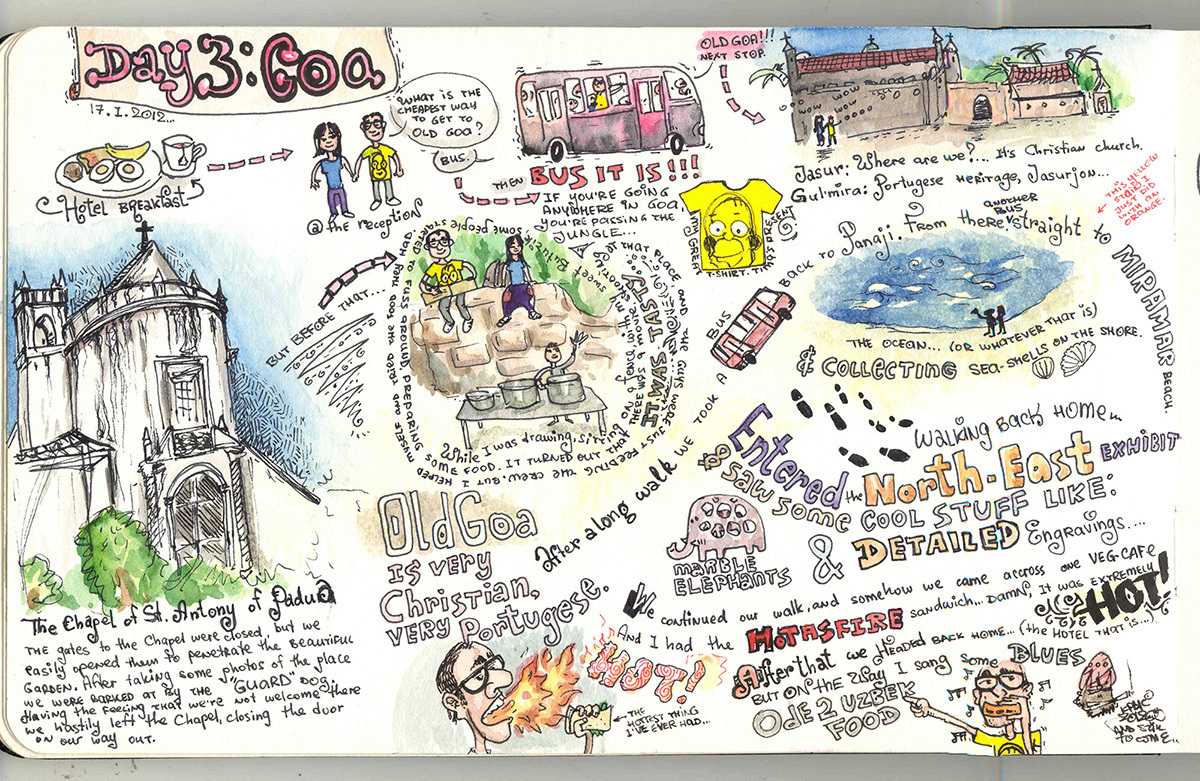 Day 3: Goa
17.I.2012...
Hotel Breakfast
WHAT IS THE
CHEAPEST WAY
TO GET TO
OLD GOA?
BUS.
@ the reception
THEN
BUS IT IS!!!
IF YOU'RE GOING
ANYWHERE IN GOA,
YOU'RE PASSING THE
JUNGLE...
OLD GOA!!!
NEXT STOP.
WOW WOW
WOW WOW
WOW
Jasur: Where are we?... It's Christian church.
Gulmira: Portugese heritage, Jasurjon...
THIS YELLOW
STAIN I
JUST DID
WITH AN
ORANGE.
MY GREAT T-SHIRT. THAT'S PRESENT
BUT BEFORE THAT...
While I was drawing, sitting on
SOME FOOD. IT TURNED OUT THAT THERE WAS a movie shooting
AT THAT PLACE, AND THE GUYS WERE JUST FEEDING THE CREW. BUT I HELPED MYSELF
IT WAS TASTY!
After a long walk WE TOOK A BUS BACK TO Panaji. From there, straight to MIRAMAR BEACH.
ANOTHER
BUS
THE OCEAN... (OR WHATEVER THAT IS)
& COLLECTING SEA-SHELLS ON THE SHORE.
The Chapel of St. Antony of Padua
THE gates to the Chapel were closed, but we
easily opened them to penetrate the BEAUTIFUL
GARDEN. After taking some photos of the place
we were BARKED AT BY THE "GUARD" DOG.
Having the FEELING THAT we're NOT welcome there
we hastily left the Chapel, closing the door
ON our way out.
Old Goa
IS VERY
Christian,
VERY Portugese.
WALKING BACK HOME...
Entered the North-East EXHIBIT
& SAW SOME COOL STUFF LIKE:
MARBLE
ELEPHANTS
& DETAILED Engravings....
We continued our walk, and somehow we came accross one VEG-CAFE
And I had the HOTASFIRE sandwich... DAMN, IT WAS EXTREMELY
HOT!
HOT!
THE
HOTTEST THING
I'VE EVER HAD...
After that we HEADED BACK HOME... (the HOTEL THAT IS...)
BUT ON THE WAY I SANG SOME BLUES
Ode 2 UZBEK
FOOD
2012
AND STILL
TO COME...